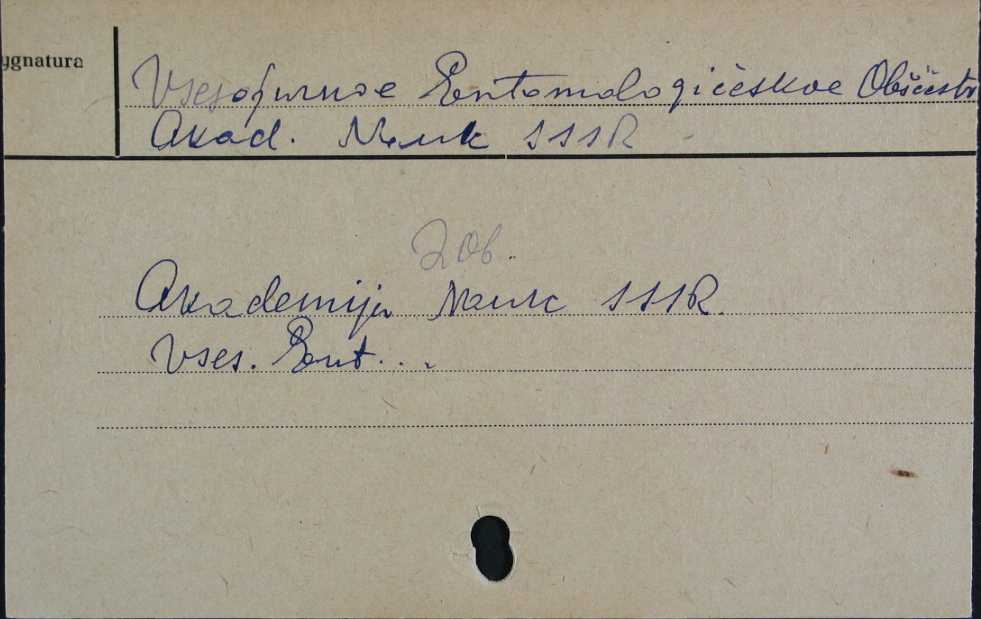 ygnatura
Vsesojuznoe Entomologičeskoe Obščestv
Akad. Nauk SSSR
Zob.
Akademija Nauk SSSR.
Vses. Ent...